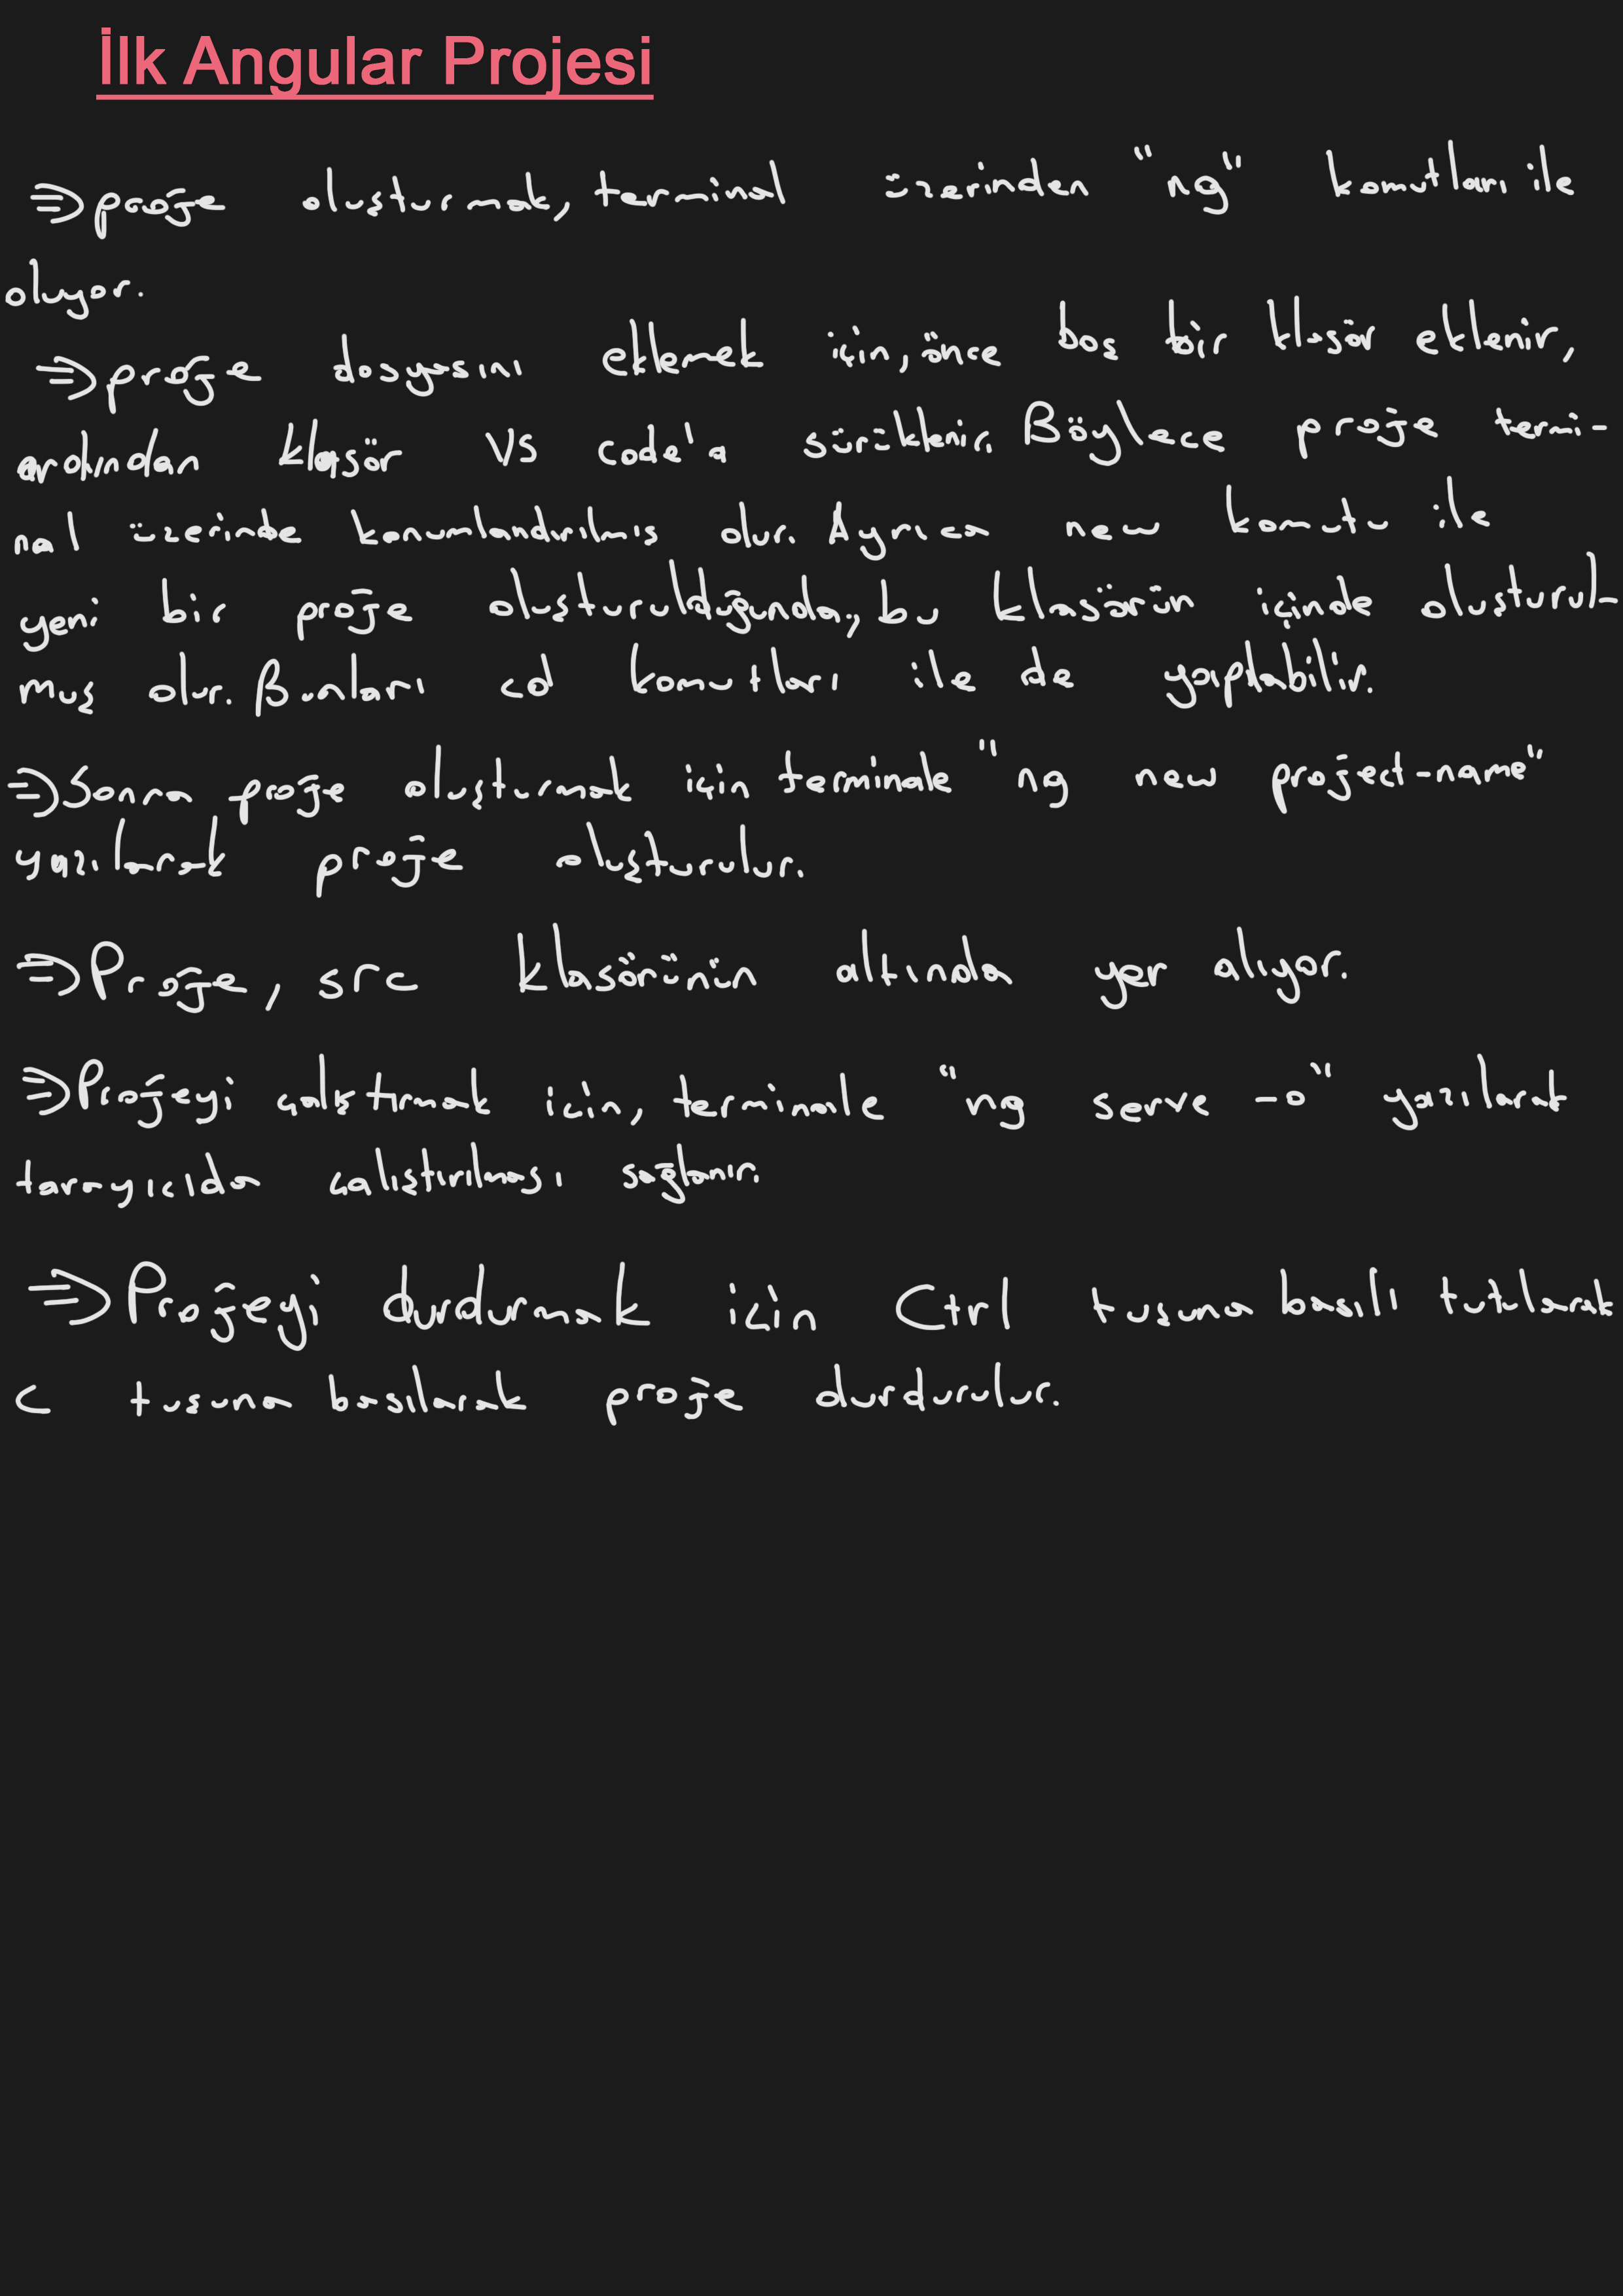 İlk Angular Projesi
⇒ proje oluşturmak, terminal üzerinden "ng" komutları ile
oluyor.
⇒ proje dosyasını eklemek için, önce boş bir klasör eklenir,
ardından klasör VS code'a sürüklenir. Böylece proje termi-
nal üzerinde konumlandırılmış olur. Ayrıca new komutu ile
yeni bir proje oluşturulduğunda, bu klasörün içinde oluşturul-
muş olur. Bunları cd komutları ile de yapılabilir.
⇒ Sonra proje oluşturmak için terminale "ng new project-name"
yazılarak proje oluşturulur.
⇒ Proje, src klasörünün altında yer alıyor.
⇒ Projeyi çalıştırmak için, terminale "ng serve -o" yazılarak
tarayıcıda çalıştırılması sağlanır.
⇒ Projeyi durdurmak için Ctrl tuşuna basılı tutularak
c tuşuna basılarak proje durdurulur.